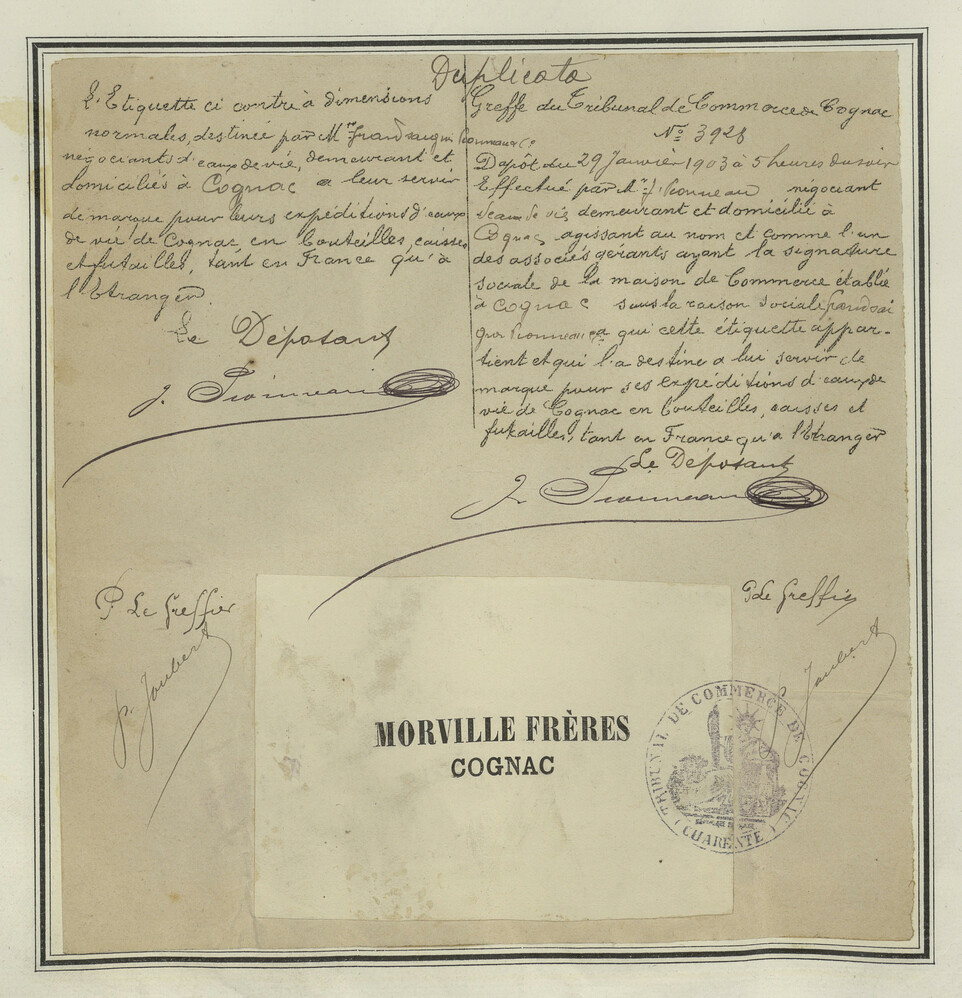 Duplicata
L'Etiquette ci contre à dimensions
normales, destinée par M
négociants d'eaux de vie, demeurant et
domiciliés à Cognac a leur servir
de marque pour leurs expéditions d'eaux
de vie de Cognac en bouteilles, caisses
et futailles, tant en France qu'à
l'Etranger.
Le Déposant
Greffe du Tribunal de Commerce de Cognac
N° 3928
Dépôt du 29 Janvier 1903 à 5 heures du soir
Effectué par Mr J. Pionneau négociant
d'eaux de vie demeurant et domicilié à
Cognac agissant au nom et comme l'un
des associés gérants ayant la signature
sociale de la maison de Commerce établie
à Cognac sous la raison sociale
a qui cette étiquette appar-
tient et qui l'a destiné a lui servir de
marque pour ses expéditions d'eaux de
vie de Cognac en bouteilles, caisses et
futailles, tant en France qu'a l'étranger
Le Déposant
J. Pionneau
J. Pionneau
P Le Greffier
p. Joubert
P Le Greffier
p. Joubert
MORVILLE FRÈRES
COGNAC
TRIBUNAL DE COMMERCE DE COGNAC
(CHARENTE)